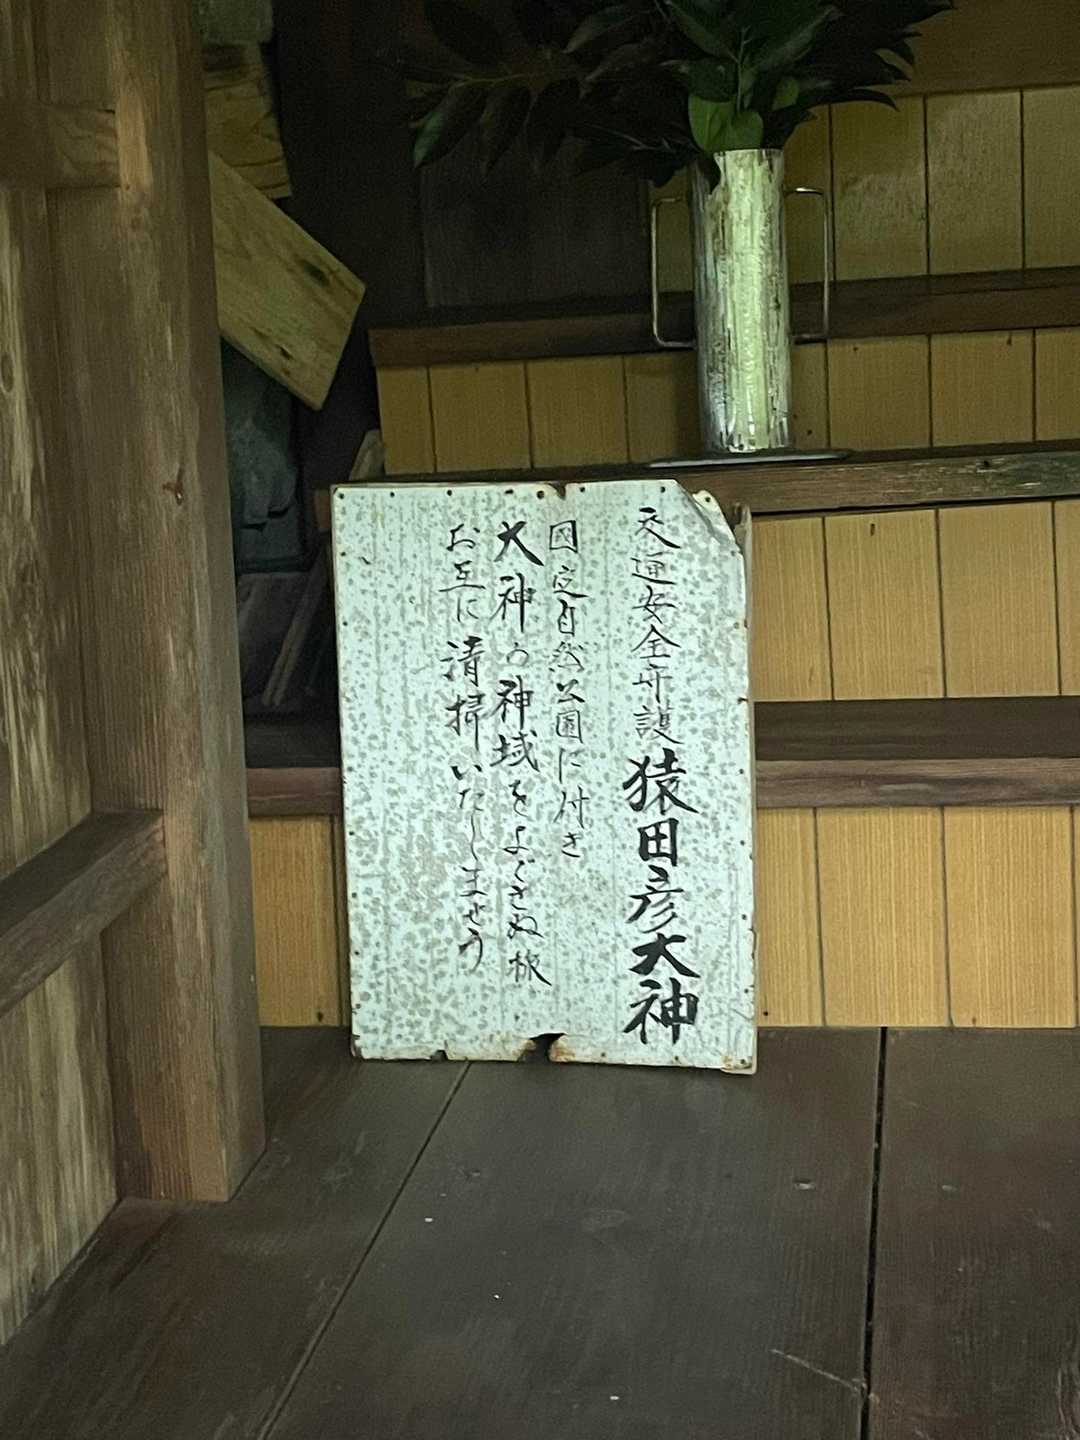 交通安全守護猿田彦大神
國定自然公園に付き
大神の神域をよごさぬ様
お互に清掃いたしませう